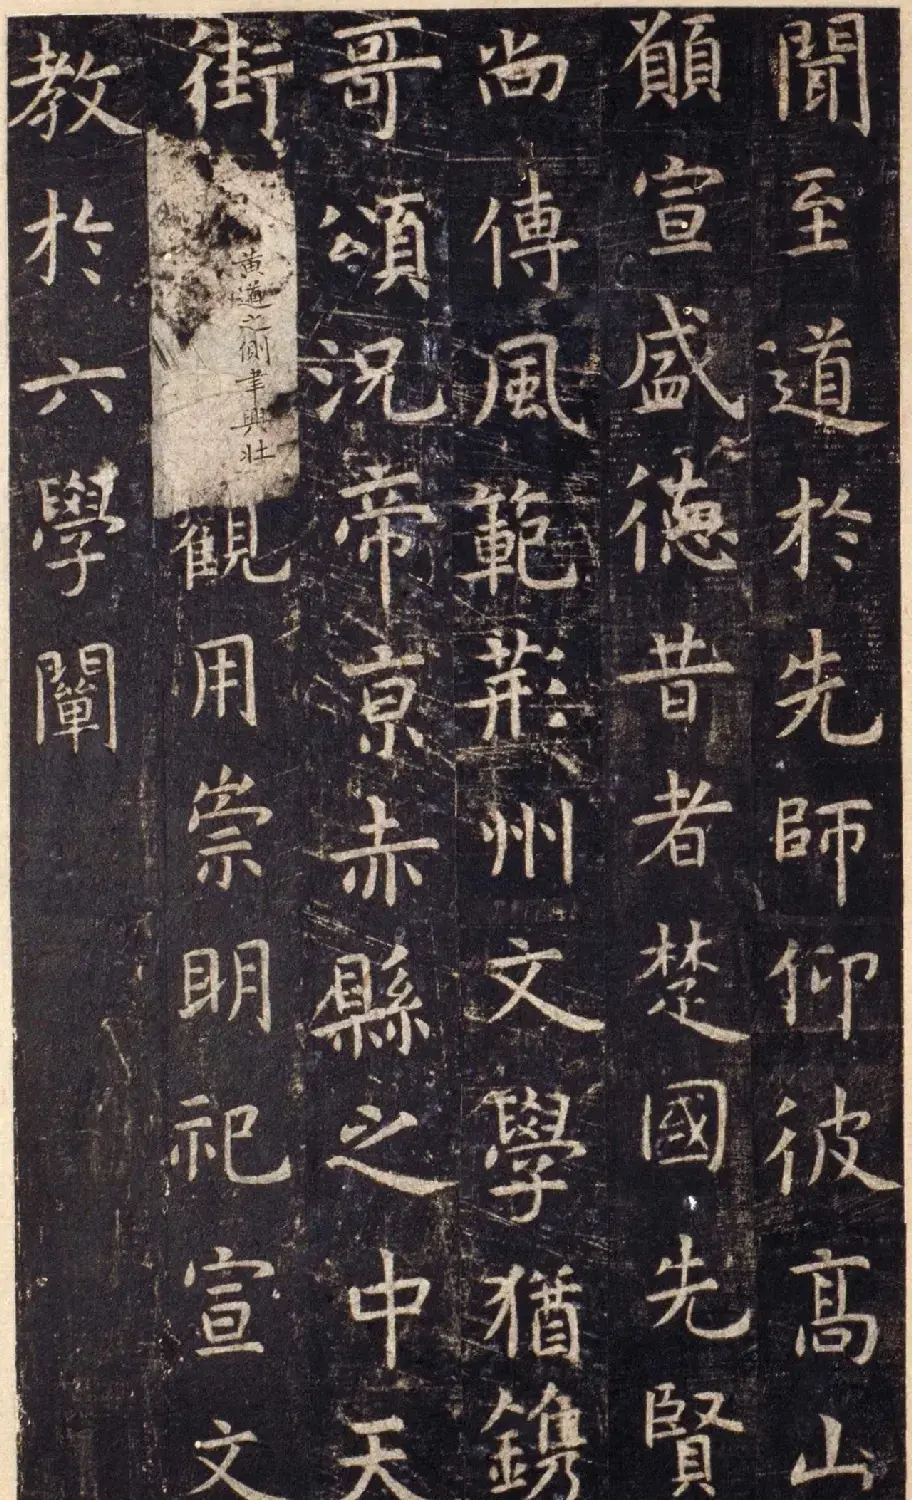 聞至道於先師仰彼高山
願宣盛德昔者楚國先賢
尚傳風範荊州文學猶鐫
哥頌況帝京赤縣之中天
街
黄道之側聿興壯
觀用崇明祀宣文
教於六學闡